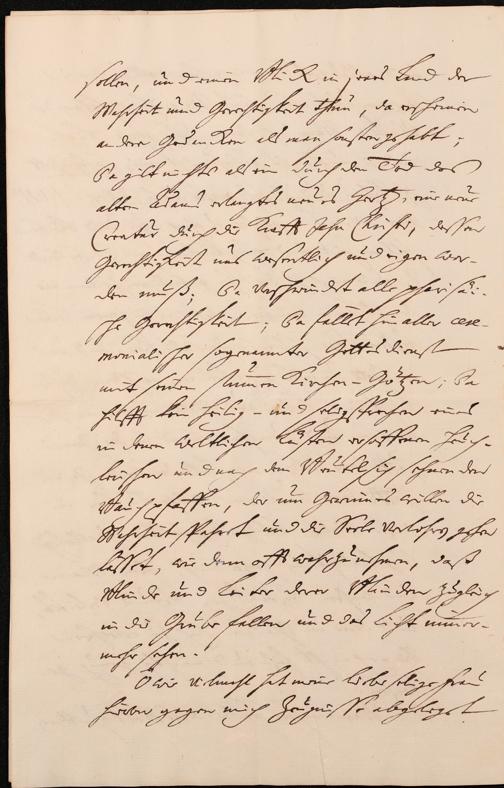 sollen, und einen Blick in jenes Land der
Wahrheit und Gerechtigkeit thun, da erscheinen
andere Gedancken als man sonsten gehabt;
Da gilt nichts als ein durch den Tod des
alten Adams erlangtes neues Hertz, eine neue
Creatur durch die Krafft Jesu Christi, dessen
Gerechtigkeit uns wesentlich und eigen wer-
den muß; Da verschwindet alle pharisäi-
sche Gerechtigkeit; Da fället hin aller cere-
monialischer sogenannter Gottesdienst
mit seinen stummen Kirchen-Götzen; Da
hilfft kein heilig- und seligsprechen eines
in denen weltlichen Lüsten ersoffenen Heuch-
lers und nach dem sehnenden
Bauchpfaffen, der um Gewinnes willen die
Wahrheit spahret und die Seele verlohren gehen
lässet, wie denn offt wahrzunehmen, daß
Blinde und Leiter derer Blinden zugleich
in die Grube fallen und das Licht nimmer-
mehr sehen.
O wie vielmahl hat meine liebe selige Frau
hievon gegen mich Zeugnisse abgelegt